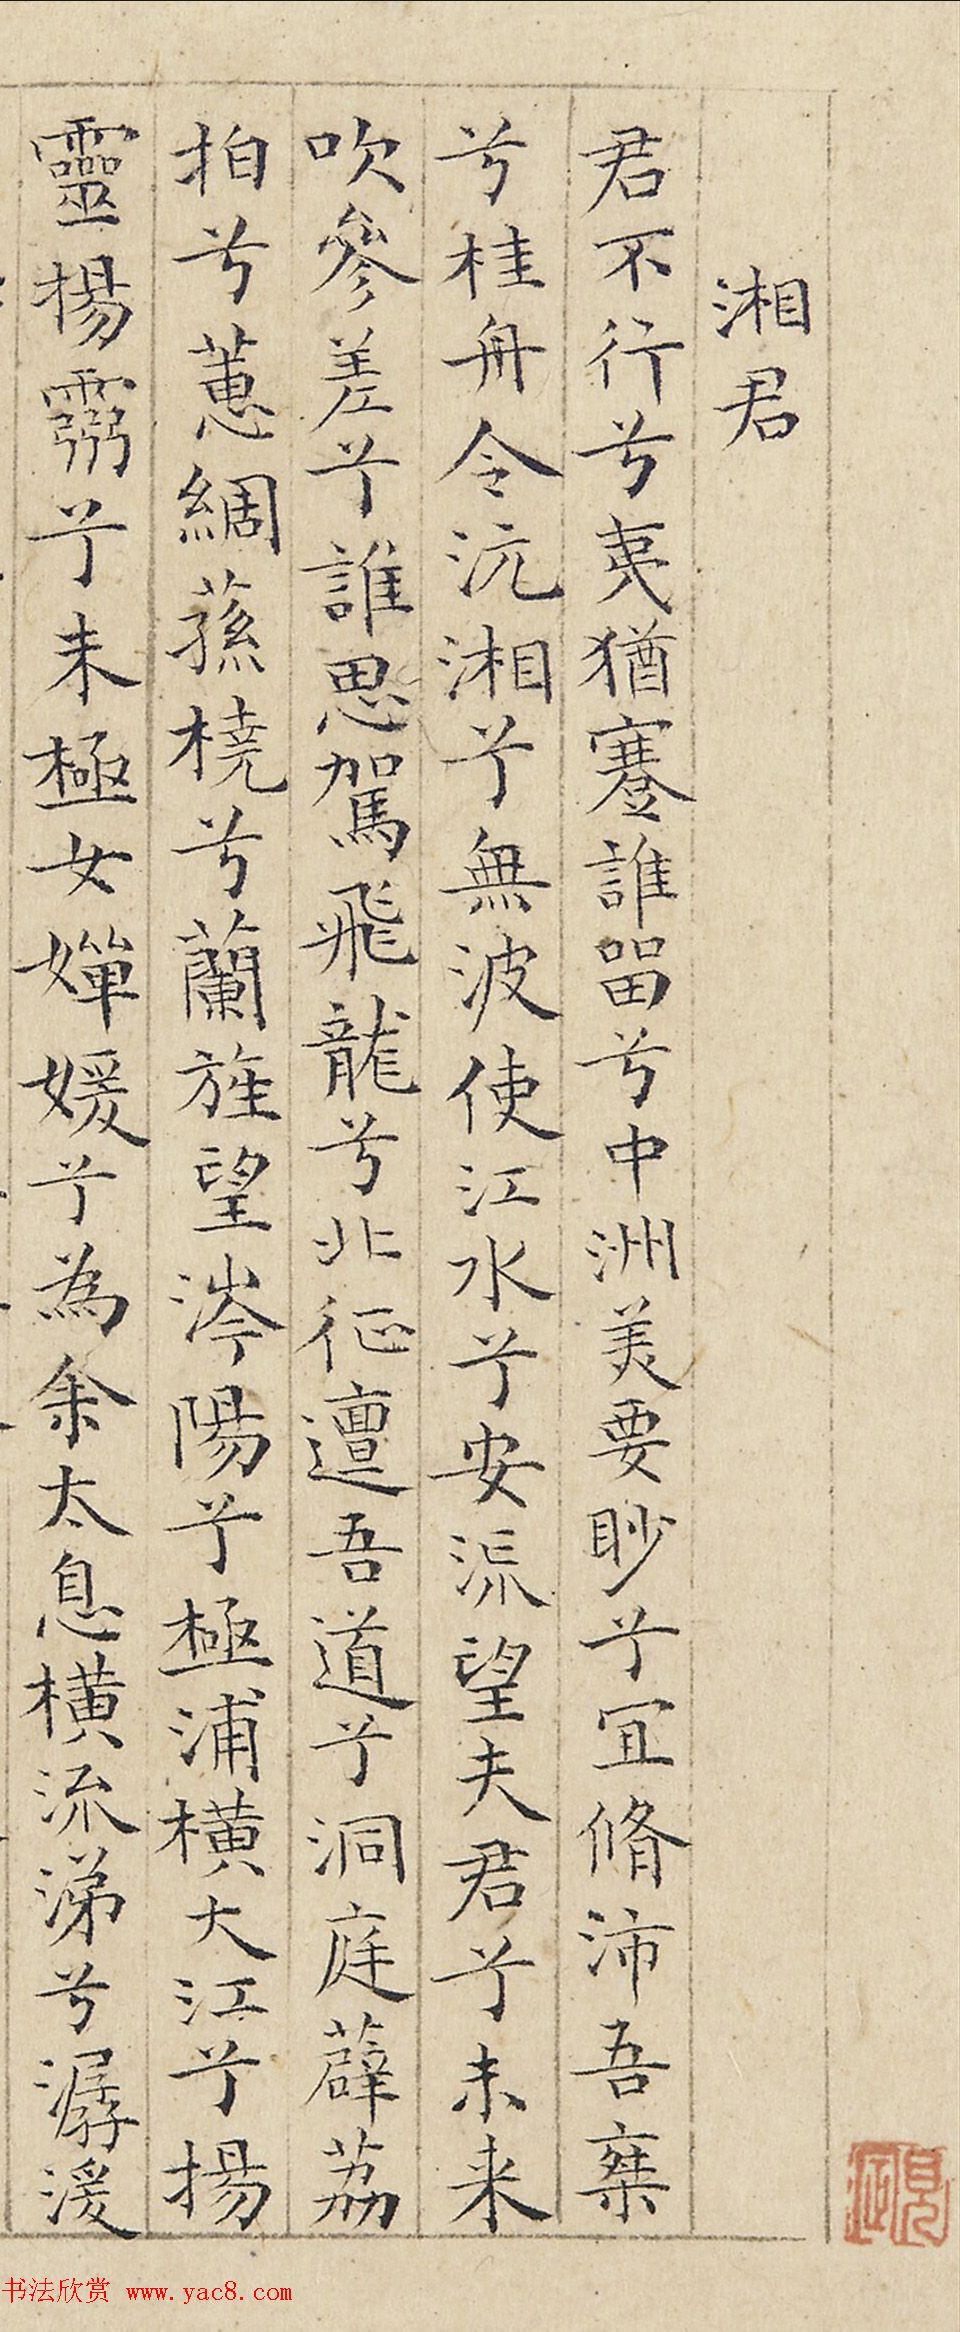 湘君
君不行兮夷猶蹇誰畱兮中洲美要眇兮宜脩沛吾椉
兮桂舟令沅湘兮無波使江水兮安流望夫君兮未來
吹參差兮誰思駕飛龍兮北征邅吾道兮洞庭薜荔
拍兮蕙綢蓀橈兮蘭旌望涔陽兮極浦橫大江兮揚
靈楊靈兮未極女嬋媛兮為余太息橫流涕兮潺湲
书法欣赏 www.yac8.com